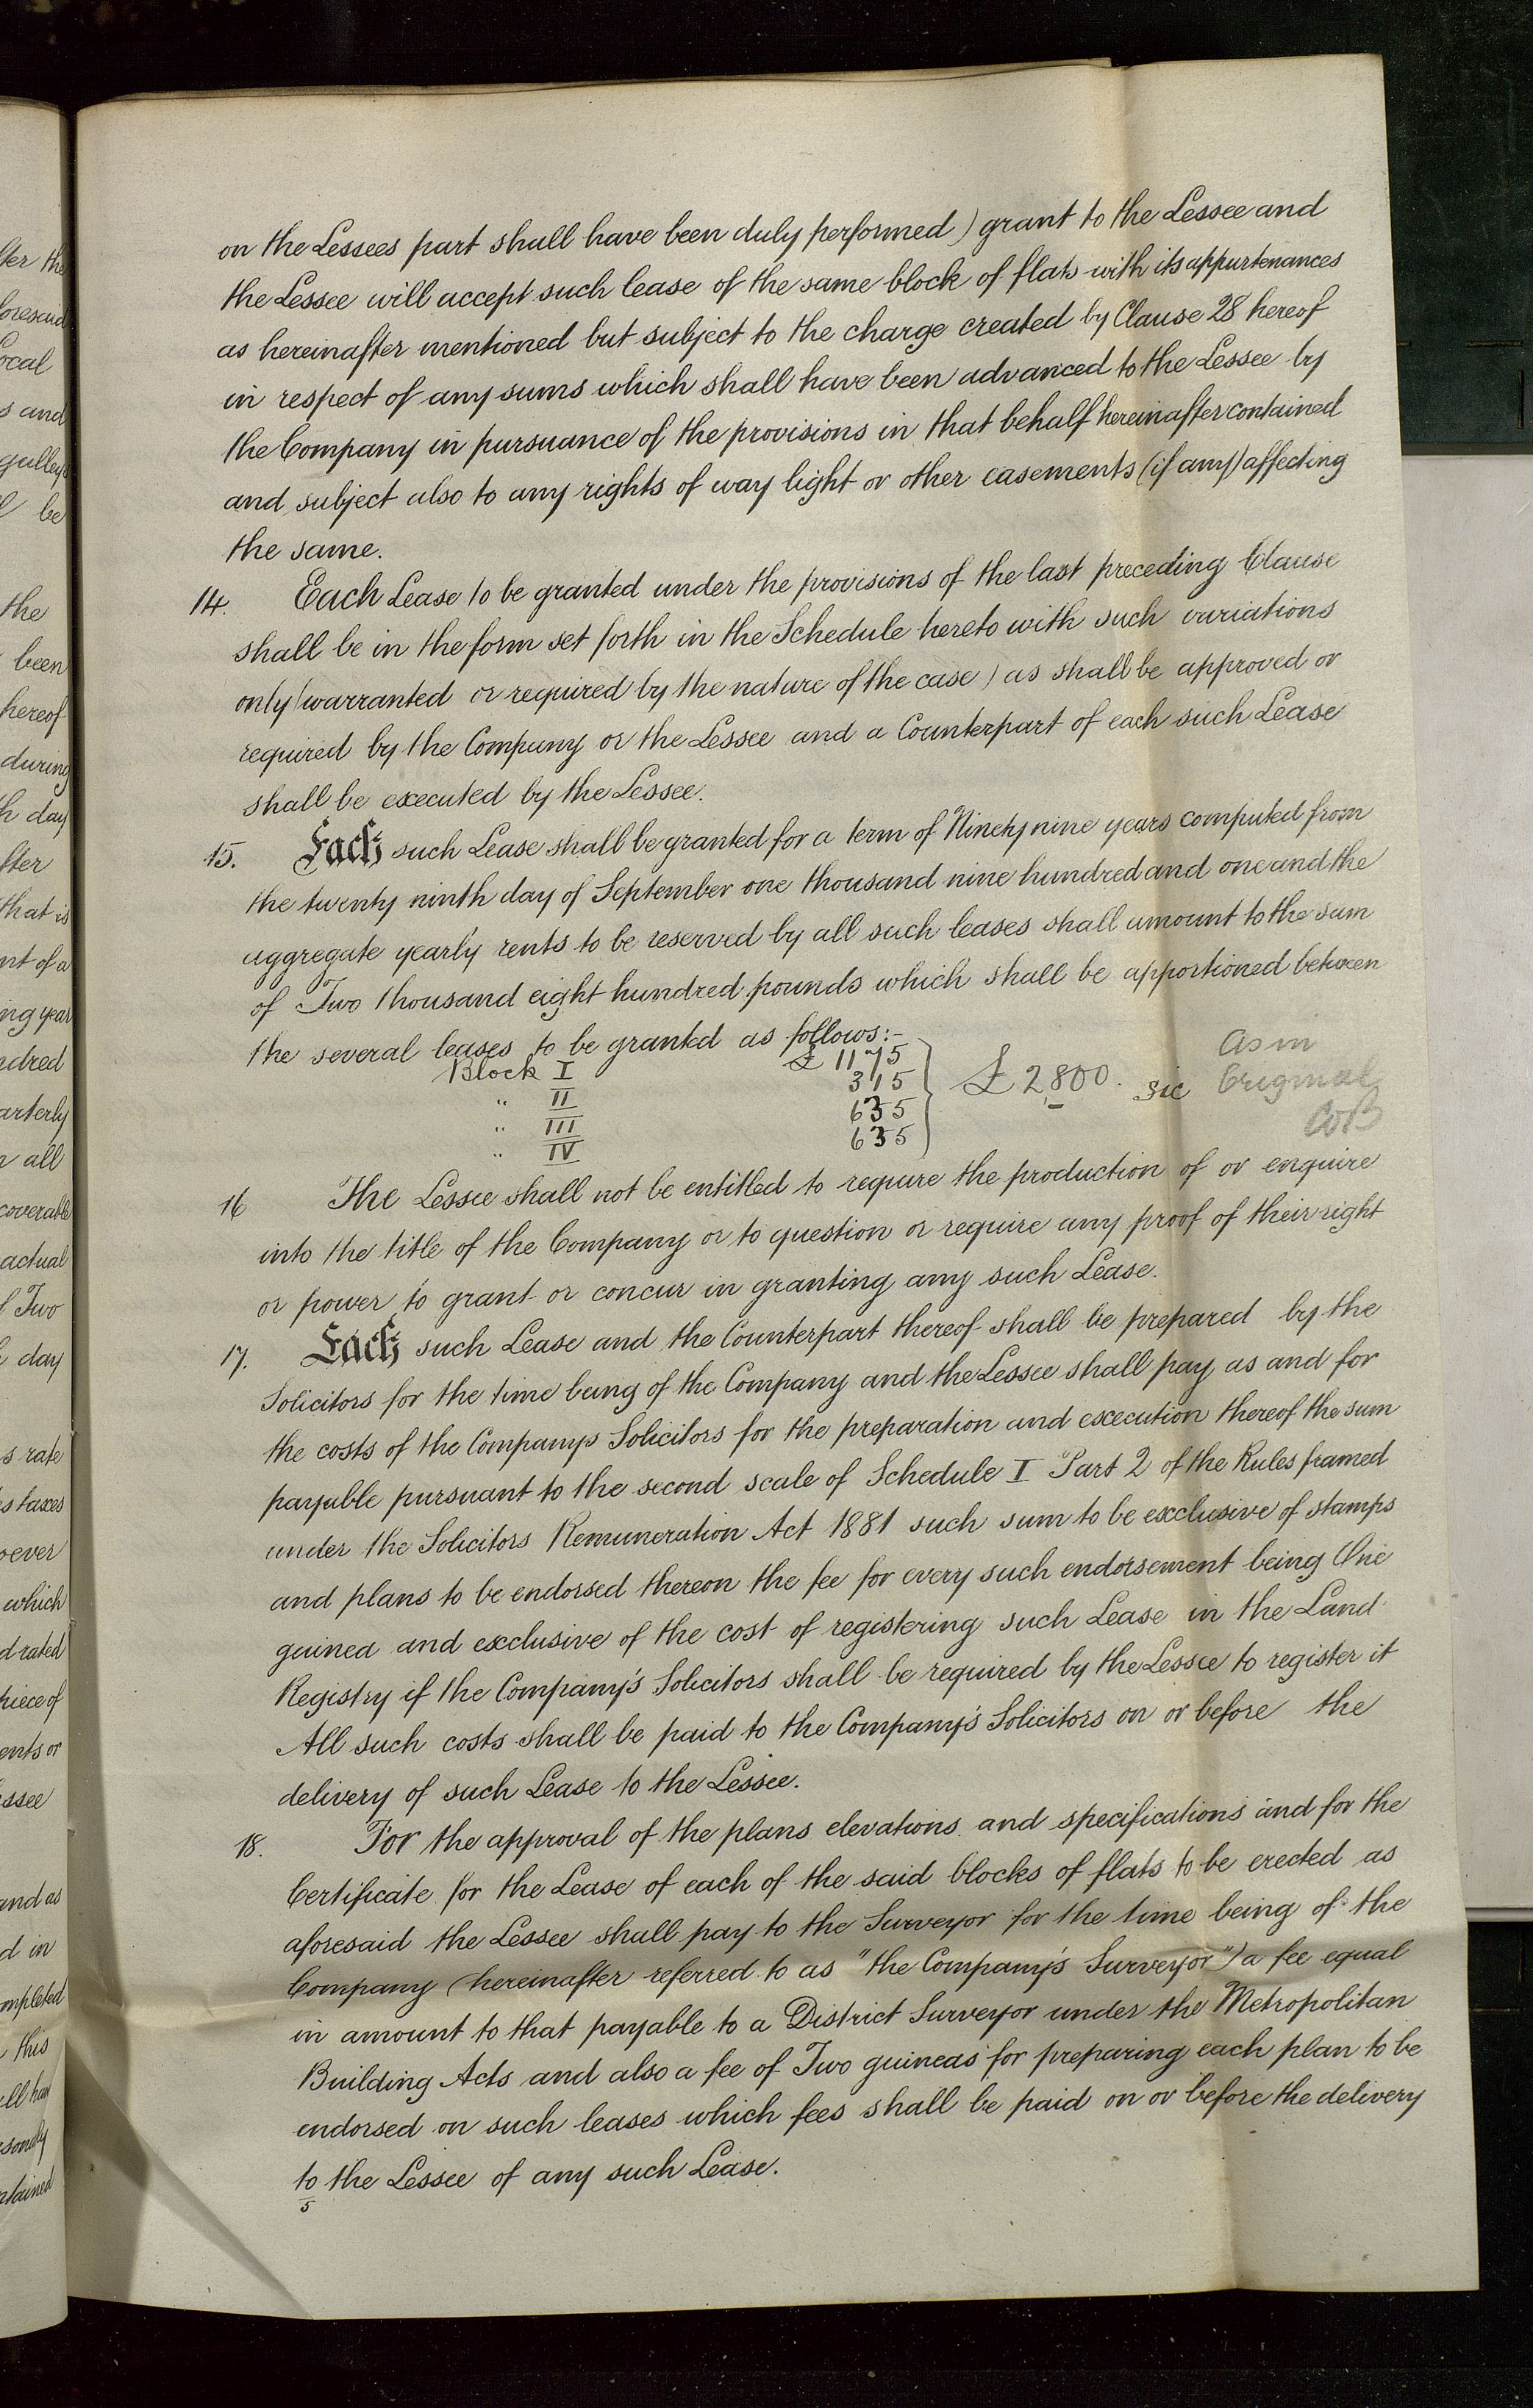 on the Lessees part shall have been duly performed) grant to the Lessee and
the Lessee will accept such lease of the same block of flats with its appurtenances
as hereinafter mentioned but subject to the charge created by Clause 28 hereof
in respect of any sums which shall have been advanced to the Lessee by
the Company in pursuance of the provisions in that behalf hereinafter contained
and subject also to any rights of way light or other easements (if any) affecting
the same.
14. Each Lease to be granted under the provisions of the last preceding Clause
shall be in the form set forth in the Schedule hereto with such variations
only (warranted or required by the nature of the case) as shall be approved or
required by the Company or the Lessee and a Counterpart of each such Lease
shall be executed by the Lessee.
15. Each such Lease shall be granted for a term of Ninety nine years computed from
the twenty ninth day of September one thousand nine hundred and one and the
aggregate yearly rents to be reserved by all such leases shall amount to the sum
of Two thousand eight hundred pounds which shall be apportioned between
the several leases to be granted as follows:-
Block I £ 1175
" II 315
" III 635
" IV 635
£ 2800. sic
As in
Original
16 The Lessee shall not be entitled to require the production of or enquire
into the title of the Company or to question or require any proof of their right
or power to grant or concur in granting any such Lease.
17. Each such Lease and the Counterpart thereof shall be prepared by the
Solicitors for the time being of the Company and the Lessee shall pay as and for
the costs of the Companys Solicitors for the preparation and execution thereof the sum
payable pursuant to the second scale of Schedule I Part 2 of the Rules framed
under the Solicitors Remuneration Act 1881 such sum to be exclusive of stamps
and plans to be endorsed thereon the fee for every such endorsement being One
guinea and exclusive of the cost of registering such Lease in the Land
Registry if the Company's Solicitors shall be required by the Lessee to register it
All such costs shall be paid to the Company's Solicitors on or before the
delivery of such Lease to the Lessee.
18. For the approval of the plans elevations and specifications and for the
Certificate for the Lease of each of the said blocks of flats to be erected as
aforesaid the Lessee shall pay to the Surveyor for the time being of the
Company (hereinafter referred to as "the Company's Surveyor") a fee equal
in amount to that payable to a District Surveyor under the Metropolitan
Building Acts and also a fee of Two guineas for preparing each plan to be
endorsed on such leases which fees shall be paid on or before the delivery
to the Lessee of any such Lease.
5